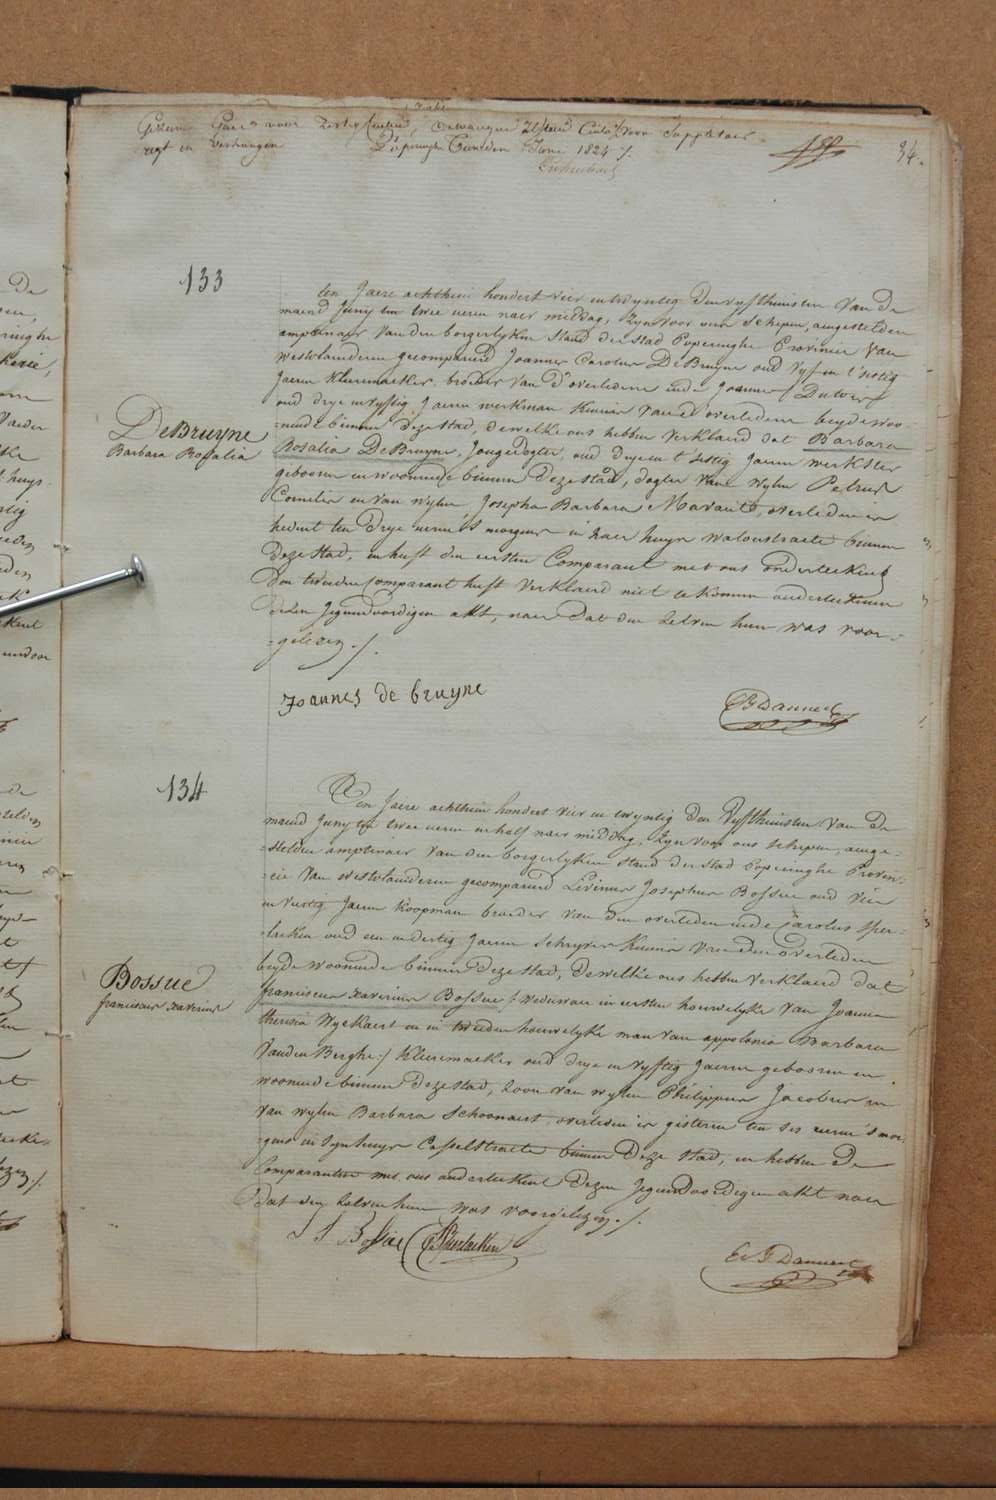 34.
Poperinghe den Juni 1824 ./.
133
ten Jaere achthien hondert vier en twyntig den vyfthiensten van de
maend Juny ten twee uren naer middag, zyn voor ons Schepen, aengestelden
amptenaer van den borgerlyken stand der stad Poperinghe Provincie van
westvlaenderen gecompareerd Joannes Carolus DeBruyne oud vyf en t'sestig
Jaeren kleermaeker, broeder van d'overledene ende Joannes
oud drye en vyftig Jaeren werkman kennis van d'overledene beyde woo-
-nende binnen deze stad, dewelke ons hebben verklaerd dat Barbara
DeBruyne
Barbara Rosalia
Rosalia DeBruyne, Jongedogter, oud drye en t'sestig Jaeren werkster
geboren en woonende binnen deze stad, dogter van wylen Petrus
Cornelis en van wylen Josepha Barbara Maraut, overleden is
heden ten drye uren 's morgens in haer huys walenstraete binnen
deze stad, en heeft den eersten Comparant met ons onderteekent
den tweeden comparant heeft verklaerd niet te konnen onderteekenen
dezen Jegenwoordigen akt, naer dat den zelven hun was voor-
-gelezen ./.
Joannes de bruyne
B Danneel
134
Ten Jaere achthien hondert vier en twyntig den vyfthiensten van de
maend Juny ten twee uren en half naer middag, zyn voor ons schepen, aenge-
-stelden amptenaer van den borgerlyken stand der stad Poperinghe Provin-
-cie van westvlaenderen gecompareerd Livinus Josephus Bossue oud vier
en veertig Jaeren koopman broeder van den overleden ende Carolus Sper-
-laeken oud een en dertig Jaeren Schryver kennis van den overleden
beyde woonende binnen deze stad, dewelke ons hebben verklaerd dat
Bossue
franciscus xaverius
franciscus xaverius Bossue /: weduwaer in eersten houwelyke van Joanna
theresia Wyckaert en in tweeden houwelyke man van appolonia Barbara
Vanden Berghe :/ kleermaeker oud drye en vyftig Jaeren geboren en
woonende binnen deze stad, zoon van wylen Philippus Jacobus en
van wylen Barbara Schoonaert, overleden is gisteren ten ses uren 's mor-
-gens in syn huys Casselstraete binnen deze stad, en hebben de
Comparanten met ons onderteekent dezen Jegenwoordigen akt naer
dat den zelven hun was voorgelezen ./.
L J Bossue C Sperlaeken
B Danneel